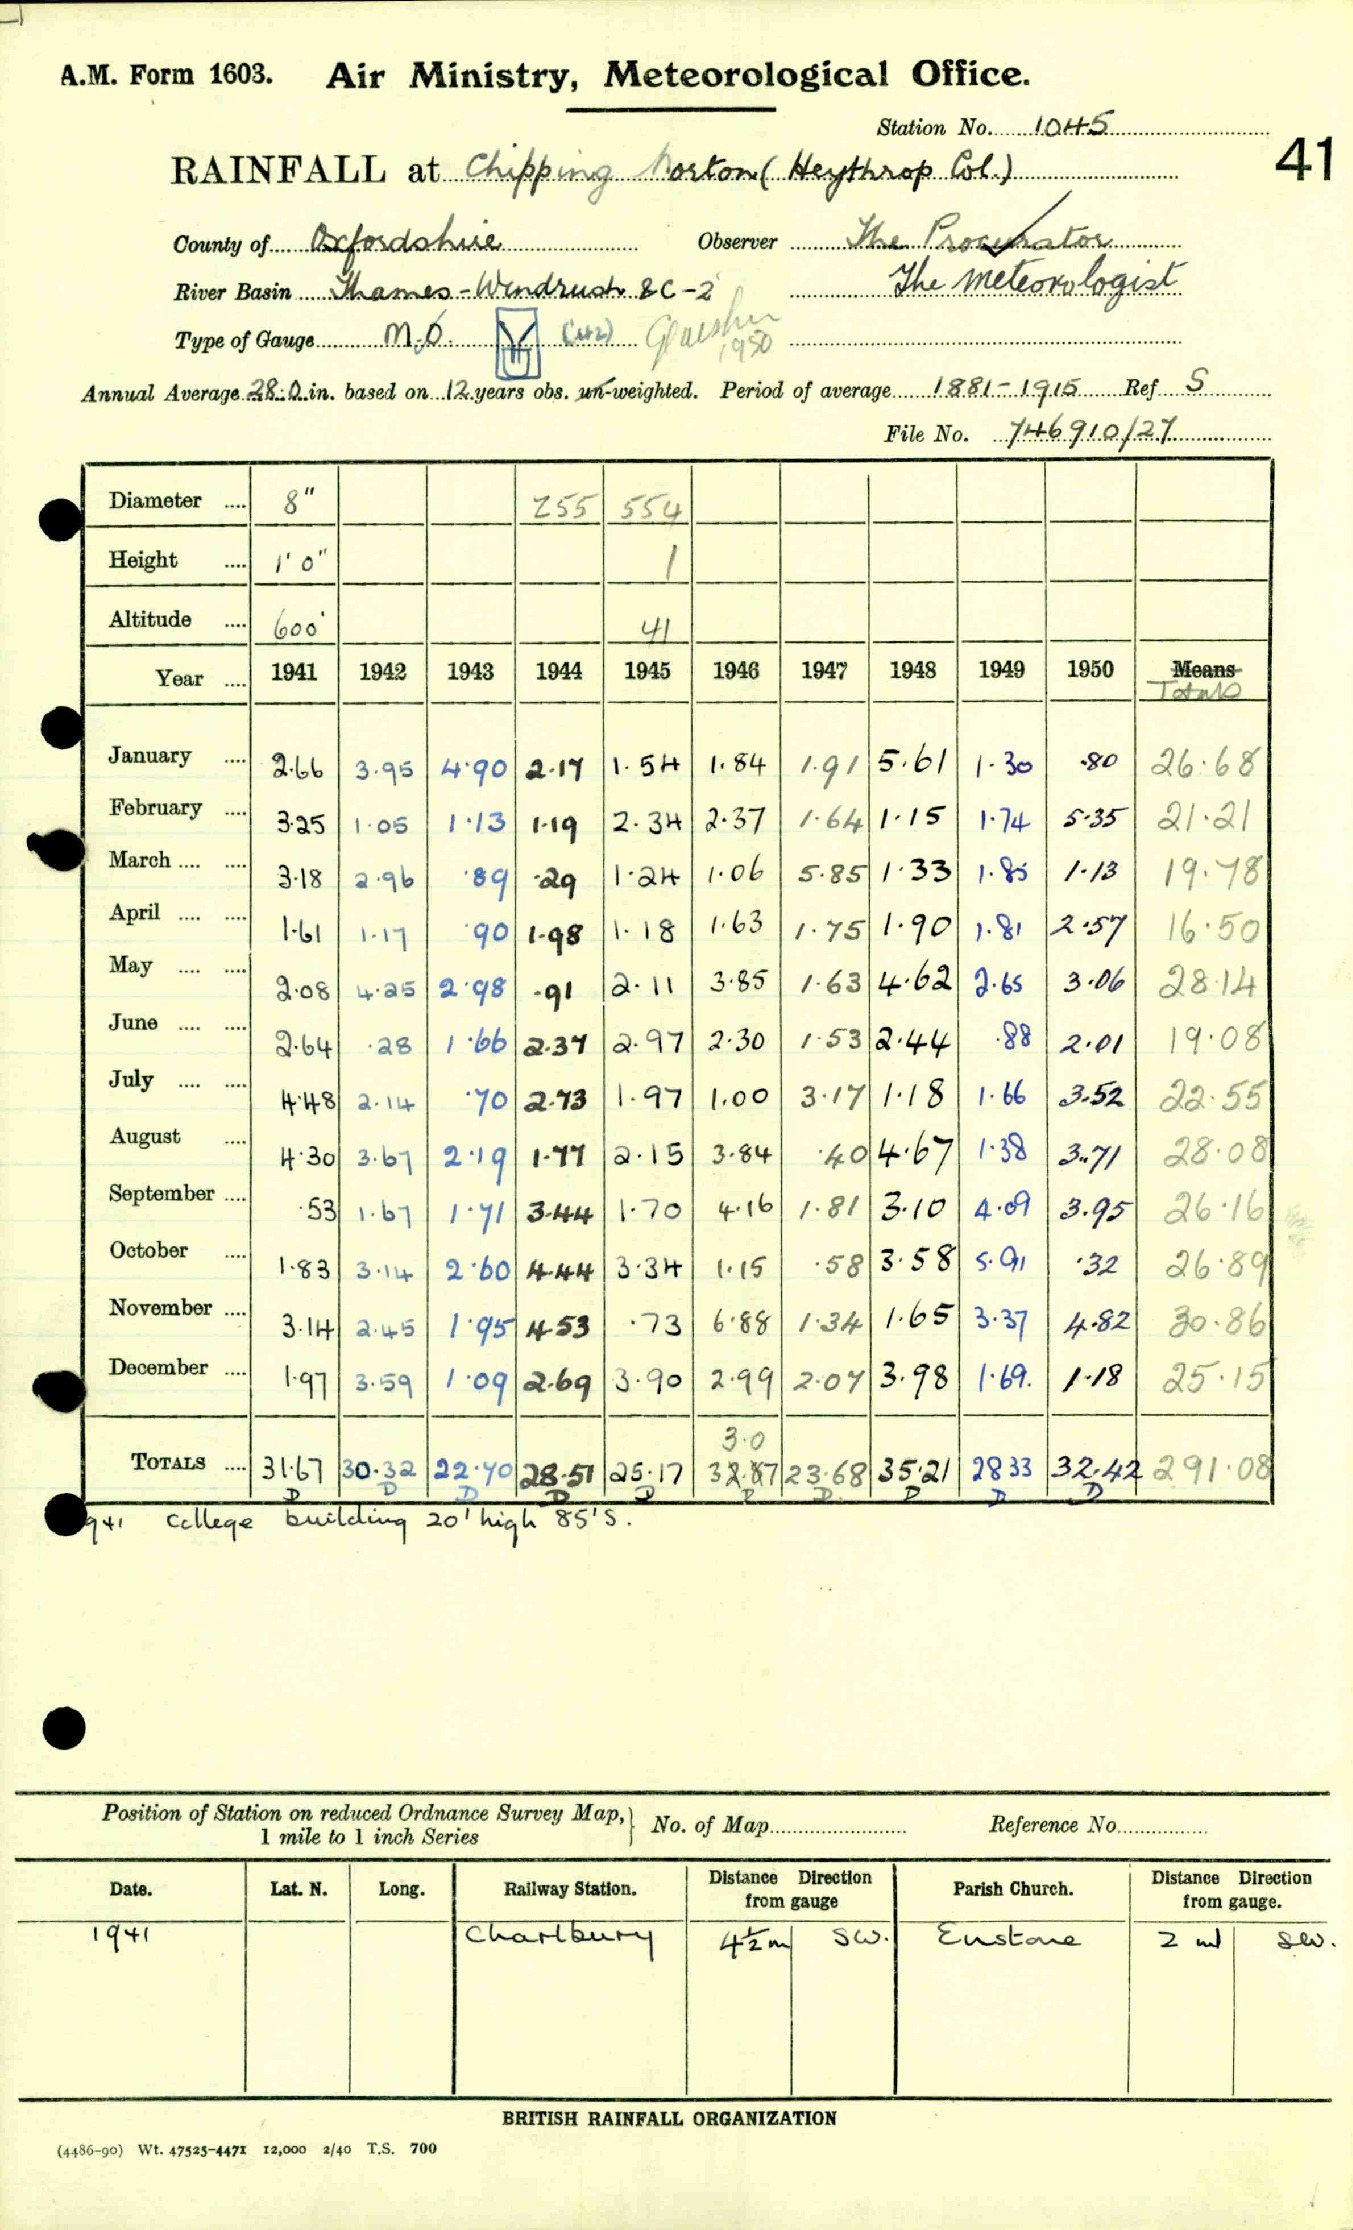 A.M. Form 1603. Air Ministry, Meteorological Office.
Station No. 1045
41
RAINFALL at Chipping Norton (Heythrop Col.)
County of Oxfordshire Observer The Procurator
River Basin Thames-Windrush 8C-2 The Meteorologist
Type of Gauge M.O. (42) Glaisher 1950
Annual Average 28.0 in. based on 12 years obs. un-weighted. Period of average 1881-1915 Ref S
File No. 746910/27
Diameter .... 8" 255 554
Height .... 1' 0" 1
Altitude .... 600' 41
Year .... 1941 1942 1943 1944 1945 1946 1947 1948 1949 1950 Means Totals
January .... 2.66 3.95 4.90 2.17 1.54 1.84 1.91 5.61 1.30 .80 26.68
February .... 3.25 1.05 1.13 1.19 2.34 2.37 1.64 1.15 1.74 5.35 21.21
March .... .... 3.18 2.96 .89 .29 1.24 1.06 5.85 1.33 1.85 1.13 19.78
April .... .... 1.61 1.17 .90 1.98 1.18 1.63 1.75 1.90 1.81 2.57 16.50
May .... .... 2.08 4.25 2.98 .91 2.11 3.85 1.63 4.62 2.65 3.06 28.14
June .... .... 2.64 .28 1.66 2.37 2.97 2.30 1.53 2.44 .88 2.01 19.08
July .... .... 4.48 2.14 .70 2.73 1.97 1.00 3.17 1.18 1.66 3.52 22.55
August .... 4.30 3.67 2.19 1.77 2.15 3.84 .40 4.67 1.38 3.71 28.08
September .... .53 1.67 1.71 3.44 1.70 4.16 1.81 3.10 4.09 3.95 26.16
October .... 1.83 3.14 2.60 4.44 3.34 1.15 .58 3.58 5.91 .32 26.89
November .... 3.14 2.45 1.95 4.53 .73 6.88 1.34 1.65 3.37 4.82 30.86
December .... 1.97 3.59 1.09 2.69 3.90 2.99 2.07 3.98 1.69. 1.18 25.15
3.0
TOTALS .... 31.67 30.32 22.70 28.51 25.17 32.87 23.68 35.21 28.33 32.42 291.08
D D D D D D D D D D
1941 College building 20' high 85'S.
Position of Station on reduced Ordnance Survey Map, No. of Map Reference No.
1 mile to 1 inch Series
Date. Lat. N. Long. Railway Station. Distance from gauge Direction Parish Church. Distance from gauge. Direction
1941 Charlbury 4½ m SW. Enstone 2 ml SW.
BRITISH RAINFALL ORGANIZATION
(4486-90) Wt. 47525-4471 12,000 2/40 T.S. 700